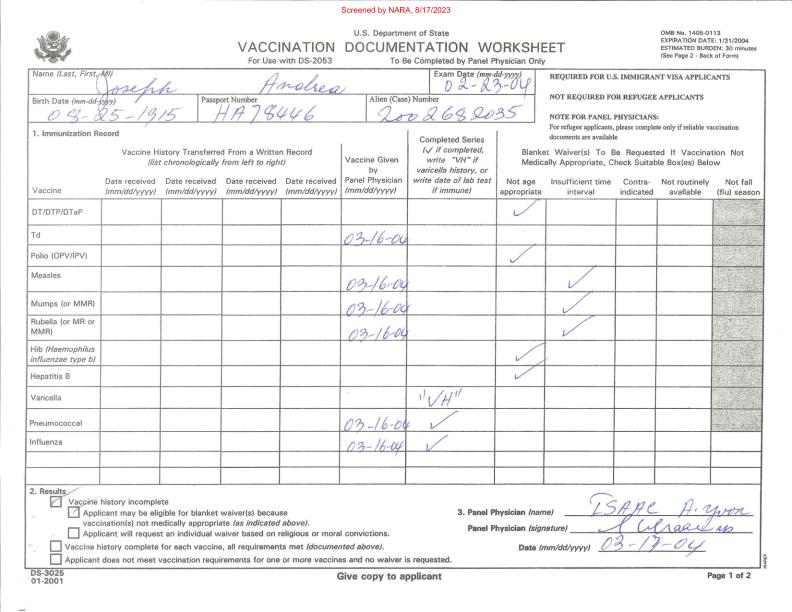 Screened by NARA, 8/17/2023
U.S. Department of State
VACCINATION DOCUMENTATION WORKSHEET
For Use with DS-2053 To Be Completed by Panel Physician Only
OMB No. 1405-0113
EXPIRATION DATE: 1/31/2004
ESTIMATED BURDEN: 30 minutes
(See Page 2 - Back of Form)
Name (Last, First, MI) Joseph Andrea
Exam Date (mm-dd-yyyy) 02-23-04
Birth Date (mm-dd-yyyy) 08-25-1915
Passport Number HA78446
Alien (Case) Number 2002682035
REQUIRED FOR U.S. IMMIGRANT VISA APPLICANTS
NOT REQUIRED FOR REFUGEE APPLICANTS
NOTE FOR PANEL PHYSICIANS:
For refugee applicants, please complete only if reliable vaccination
documents are available
1. Immunization Record
Vaccine History Transferred From a Written Record
(list chronologically from left to right)
Vaccine
Date received (mm/dd/yyyy)
Date received (mm/dd/yyyy)
Date received (mm/dd/yyyy)
Date received (mm/dd/yyyy)
Vaccine Given
by
Panel Physician
(mm/dd/yyyy)
Completed Series
(✓ if completed,
write "VH" if
varicella history, or
write date of lab test
if immune)
Blanket Waiver(s) To Be Requested If Vaccination Not
Medically Appropriate, Check Suitable Box(es) Below
Not age appropriate
Insufficient time interval
Contra-indicated
Not routinely available
Not fall (flu) season
DT/DTP/DTaP ✓
Td 03-16-04
Polio (OPV/IPV) ✓
Measles 03-16-04 ✓
Mumps (or MMR) 03-16-04 ✓
Rubella (or MR or
MMR) 03-16-04 ✓
Hib (Haemophilus
influenzae type b) ✓
Hepatitis B ✓
Varicella "VH"
Pneumococcal 03-16-04 ✓
Influenza 03-16-04 ✓
2. Results
✓ Vaccine history incomplete
✓ Applicant may be eligible for blanket waiver(s) because
vaccination(s) not medically appropriate (as indicated above).
Applicant will request an individual waiver based on religious or moral convictions.
Vaccine history complete for each vaccine, all requirements met (documented above).
Applicant does not meet vaccination requirements for one or more vaccines and no waiver is requested.
3. Panel Physician (name) ISAAC A. Yvon
Panel Physician (signature)
Date (mm/dd/yyyy) 03-17-04
DS-3025
01-2001
Give copy to applicant
Page 1 of 2